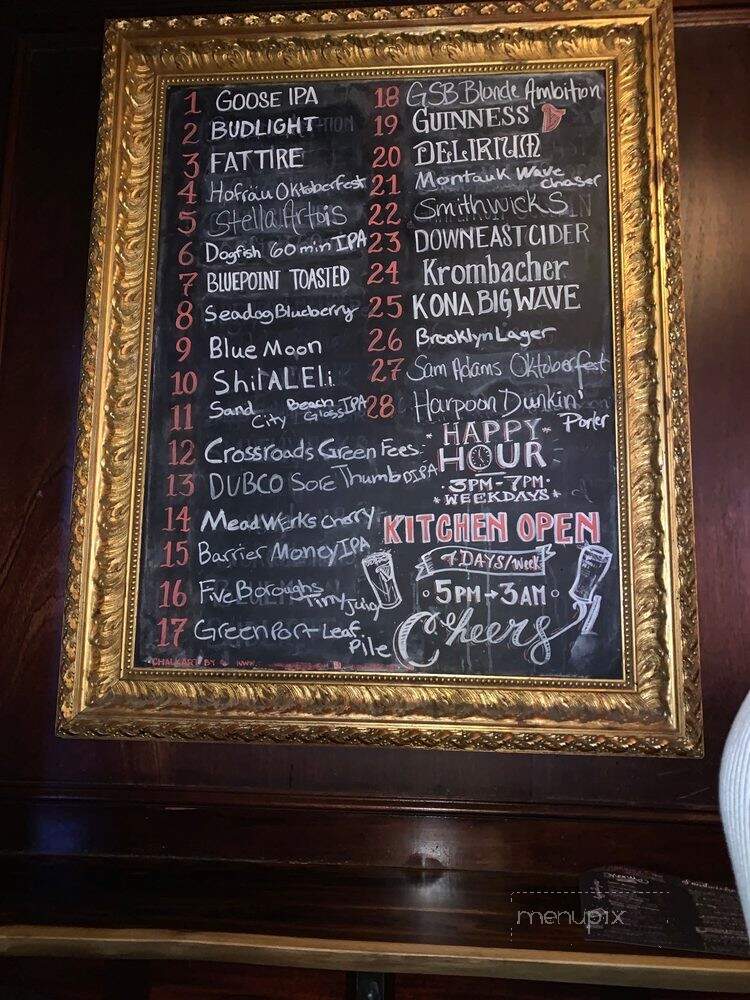 1 GOOSE IPA
2 BUDLIGHT
3 FATTIRE
4 Hofräu Oktoberfest
5 Stella Artois
6 Dogfish 60 min IPA
7 BLUEPOINT TOASTED
8 Seadog Blueberry
9 Blue Moon
10 ShilALEli
11 Sand City Beach Glass IPA
12 Crossroads Green Fees
13 DUBCO Sore Thumb DIPA
14 Mead Werks Cherry
15 Barrier Money IPA
16 Five Boroughs Tiny Juicy
17 GreenPort Leaf Pile
18 GSB Blonde Ambition
19 GUINNESS
20 DELIRIUM
21 Montauk Wave chaser
22 Smithwicks
23 DOWNEAST CIDER
24 Krombacher
25 KONA BIG WAVE
26 Brooklyn Lager
27 Sam Adams Oktoberfest
28 Harpoon Dunkin' Porter
HAPPY
HOUR
3PM-7PM
WEEKDAYS
KITCHEN OPEN
7 DAYS/Week
5PM→3AM
Cheers
CHALKART BY
menupix